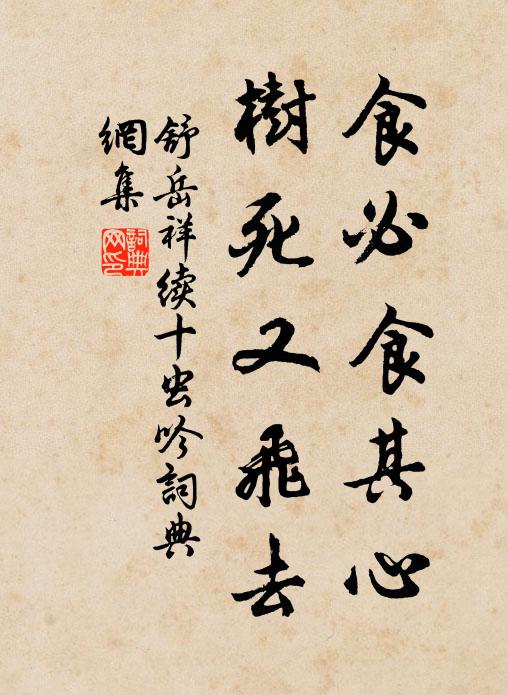 食必食其心
樹死又飛去
舒岳祥续十虫吟詞典
網集
詞典
网印